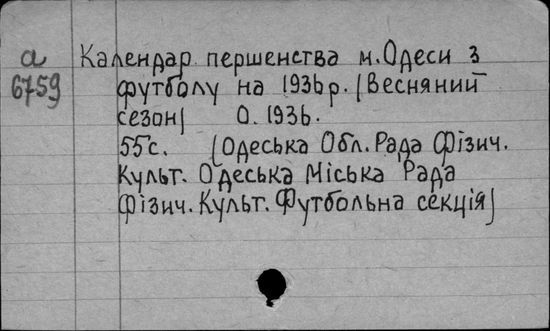 а Календар першенства м. Одеси з
6759 футболу на 1936 р. (Весняний
сезон) О. 1936.
55 с. (Одеська Обл. Рада Фізич.
Культ. Одеська Міська Рада
Фізич. Культ. Футбольна секція)